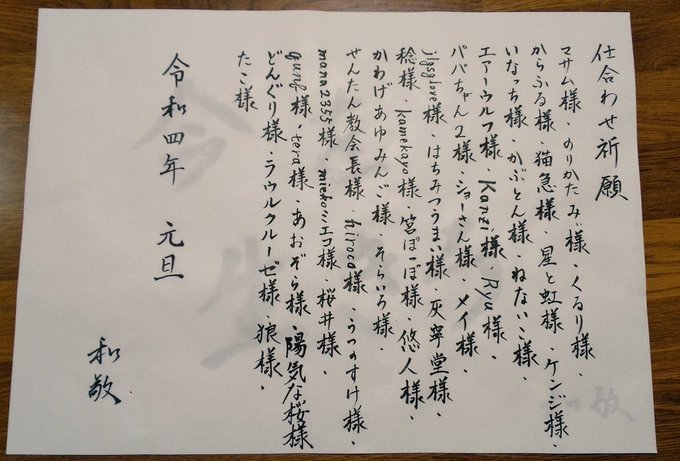 仕合わせ祈願
マサム様・のりかたみ様・くるり様・
からふる様・猫急様・星と虹様・ケンジ様・
いなっち様・かぶとん様・ねないこ様・
エアーウルフ様・Kanzi様・Ryu様・
パパちゃん2様・ショーさん様・メイ様・
jlgsglove様・はちみつうまい様・灰寧堂様・
稔様・kamekayo様・宮ぽっぽ様・悠人様・
かわげあゆみんご様・そらいろ様・
せんたん教会長様・hiroca様・うつのすけ様・
mana2355様・miekoミエコ様・桜井様・
gunf様・tera様・あおぞら様・陽気な桜様
どんぐり様・ラウルクルーゼ様・狼様・
たこ様
令和四年 元旦
和敬